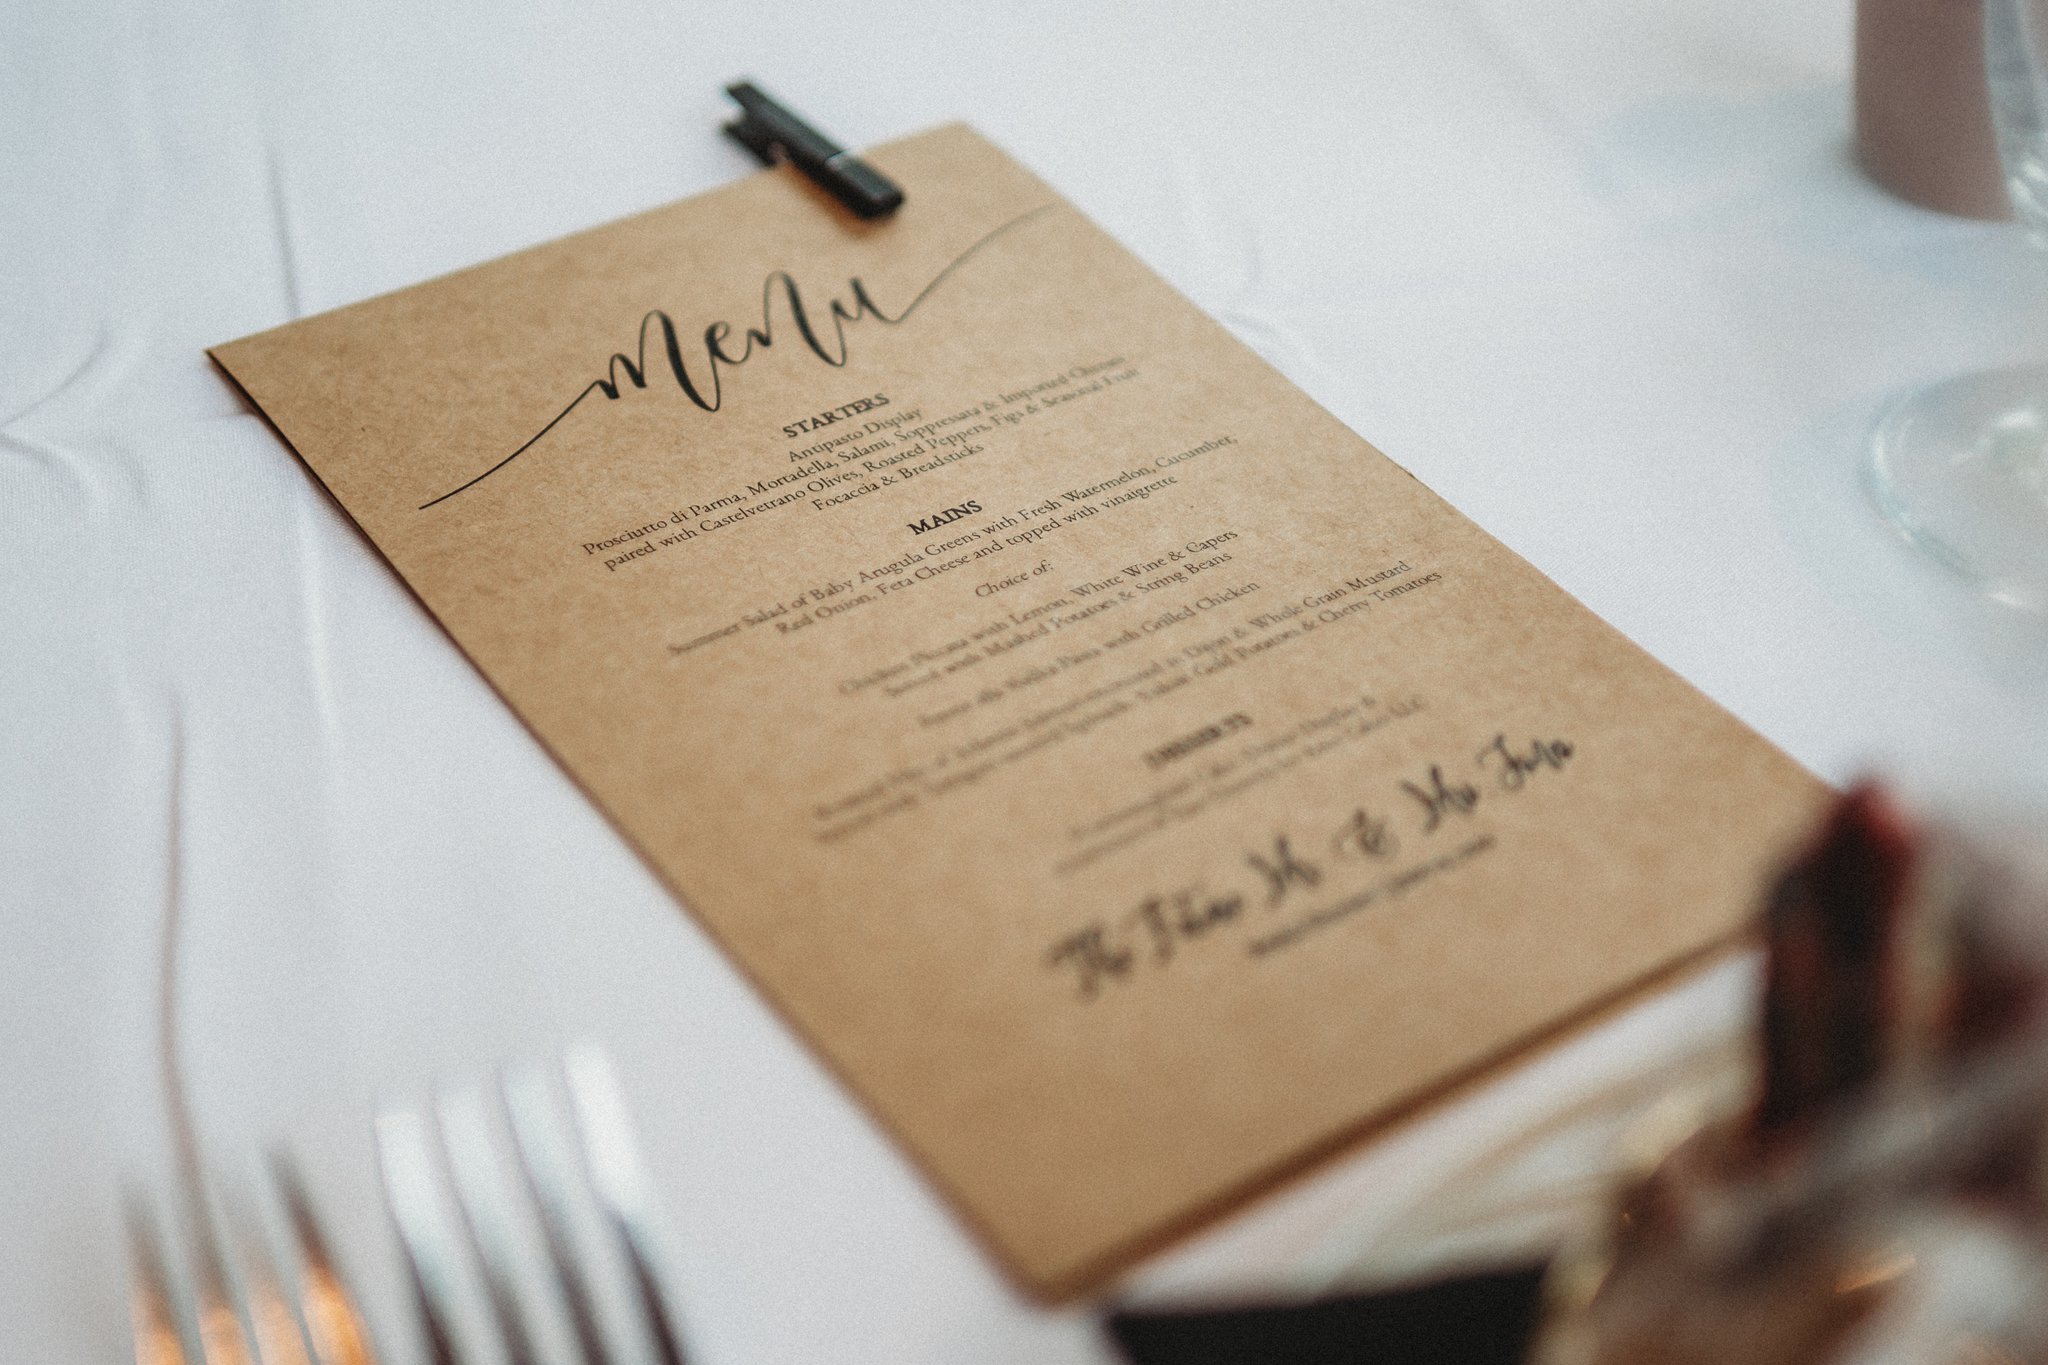 menu
STARTERS
Antipasto Display
Prosciutto di Parma, Mortadella, Salami, Soppressata & Imported Cheeses
paired with Castelvetrano Olives, Roasted Peppers, Figs & Seasonal Fruit
Focaccia & Breadsticks
MAINS
Summer Salad of Baby Arugula Greens with Fresh Watermelon, Cucumber,
Red Onion, Feta Cheese and topped with vinaigrette
Choice of:
Chicken Piccata with Lemon, White Wine & Capers
Served with Mashed Potatoes & String Beans
Penne alla Vodka Pasta with Grilled Chicken
in Dijon & Whole Grain Mustard
Spinach, Yukon Gold Potatoes & Cherry Tomatoes
DESSERTS
The Future Mr & Mrs